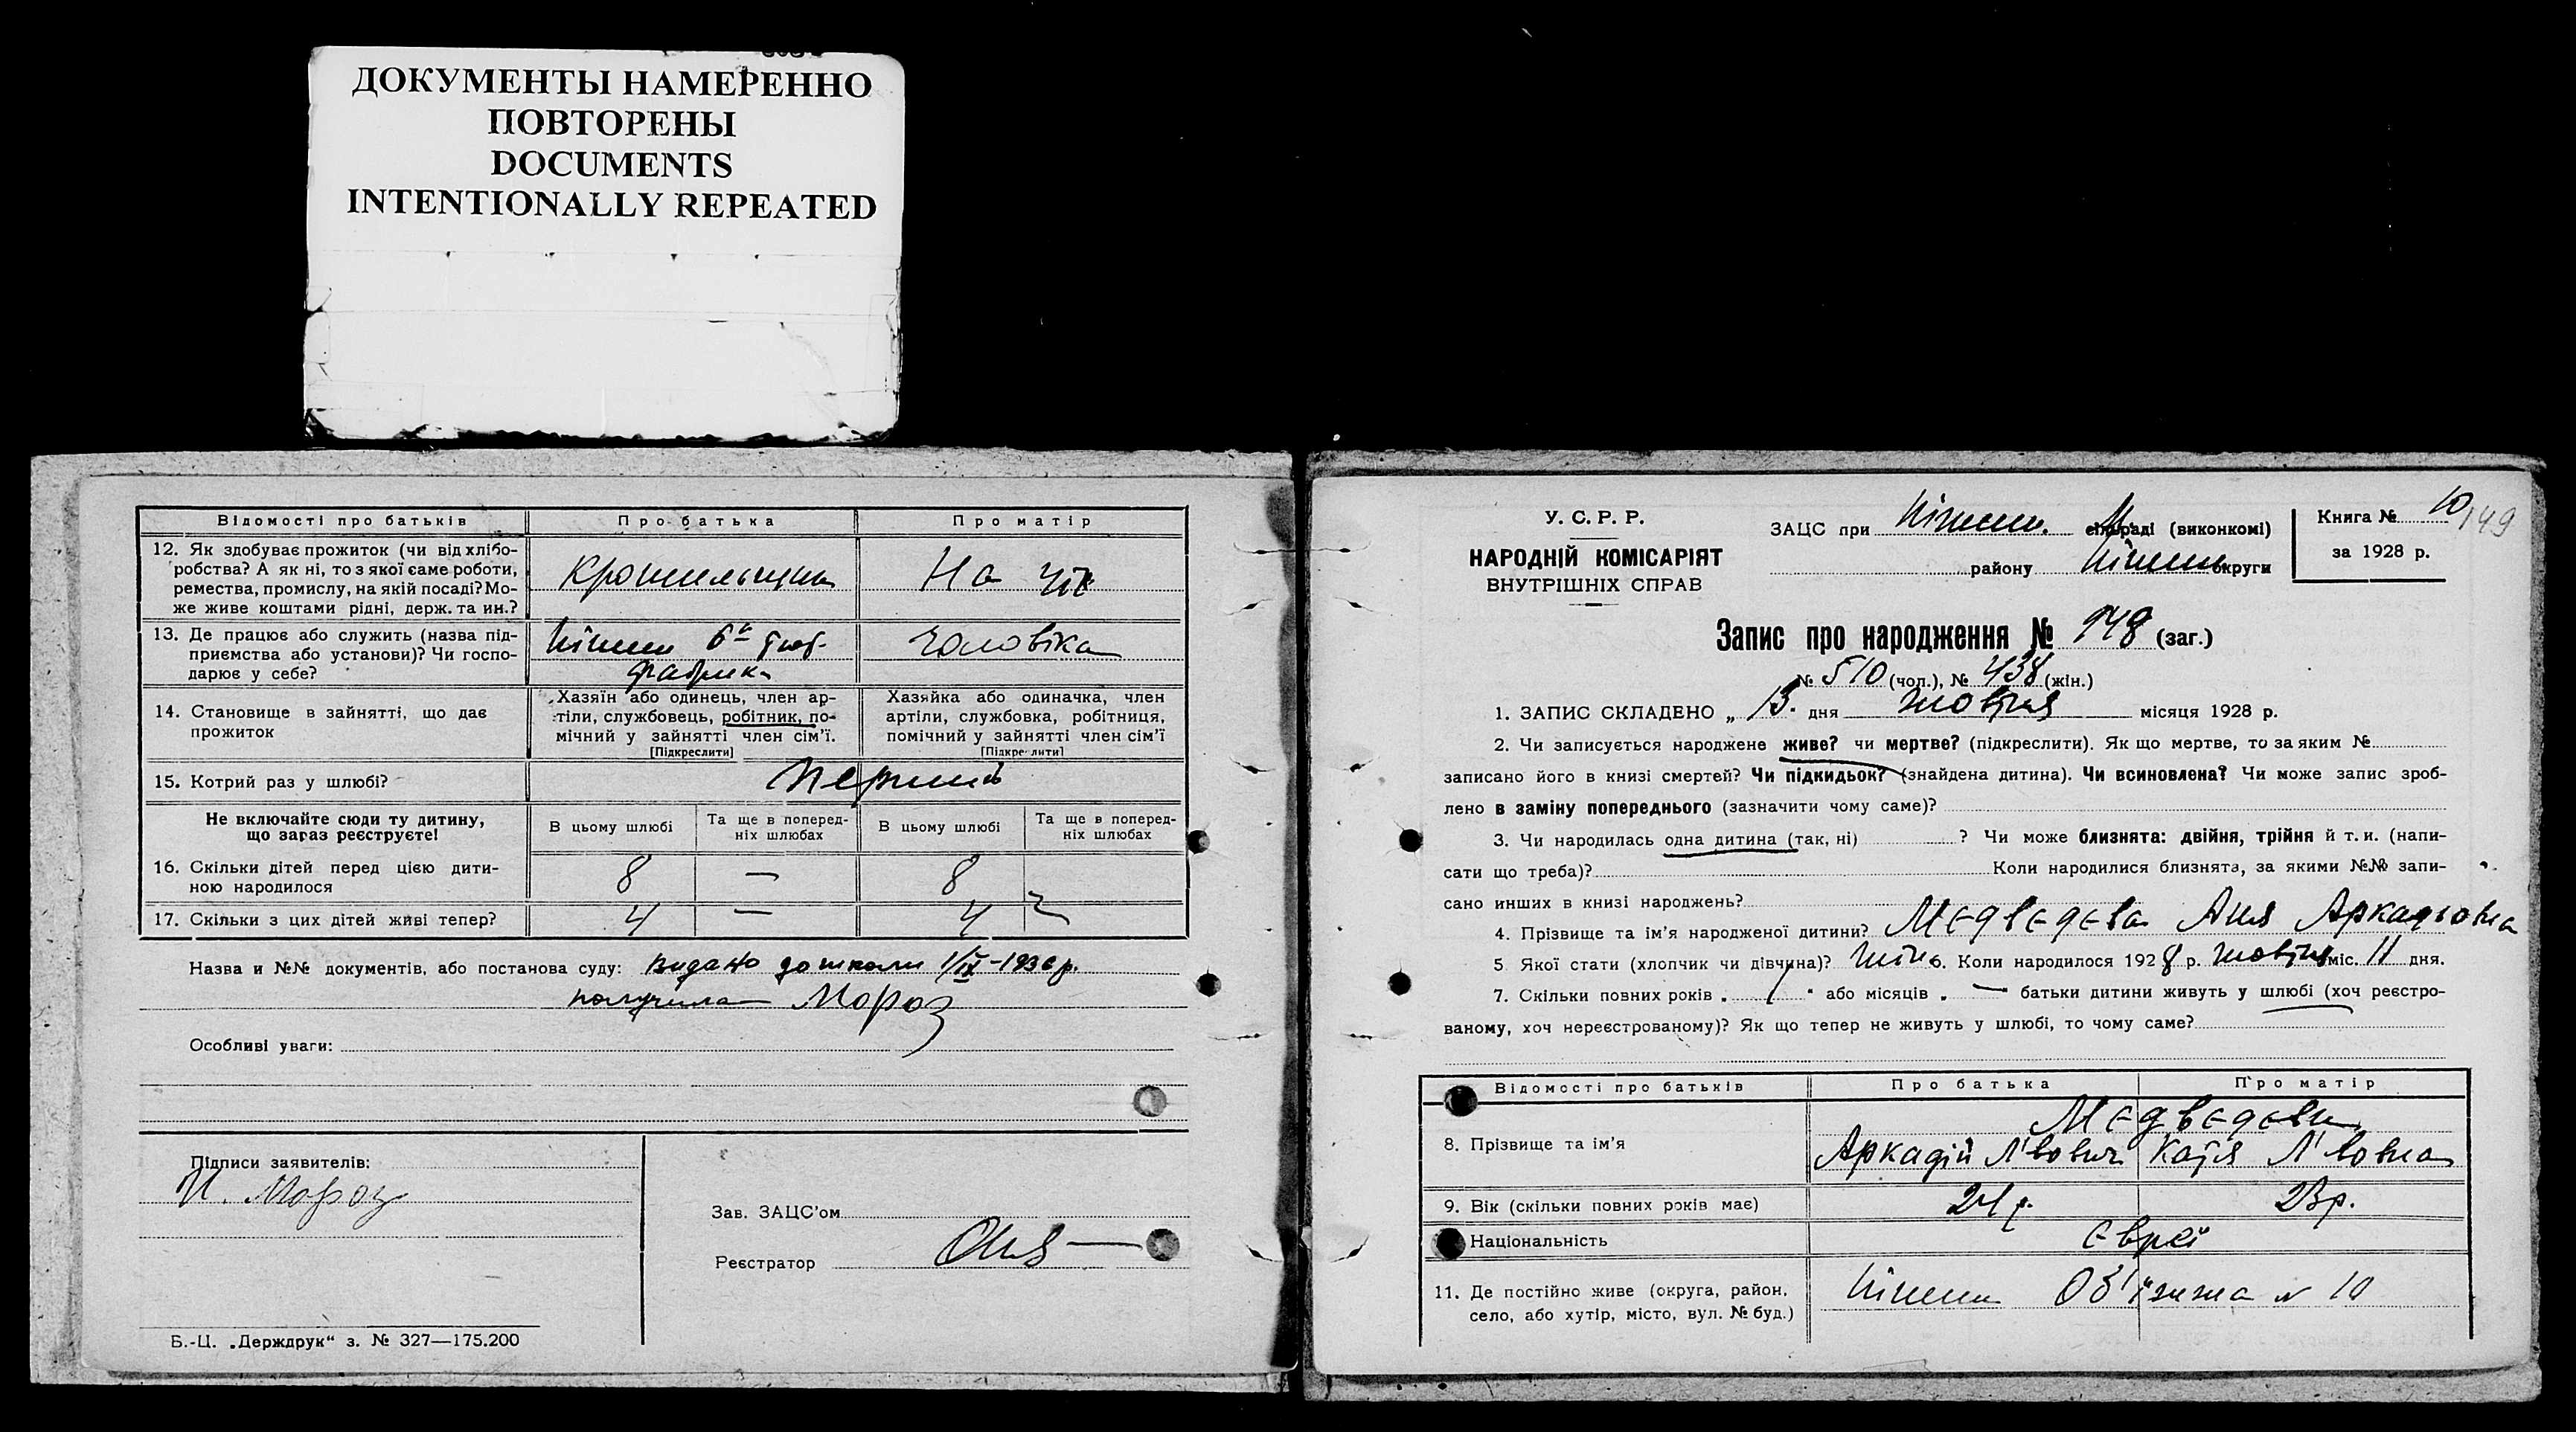 ДОКУМЕНТЫ НАМЕРЕННО
ПОВТОРЕНЫ
DOCUMENTS
INTENTIONALLY REPEATED
Відомості про батьків Про батька Про матір
12. Як здобуває прожиток (чи від хлібо-
робства? А як ні, то з якої саме роботи,
ремества, промислу, на якій посаді? Мо-
же живе коштами рідні, держ. та ин.?
Крошильщик
На
13. Де працює або служить (назва під-
приємства або установи)? Чи госпо-
дарює у себе?
Ніжин 6
фабрика
чоловіка
14. Становище в зайнятті, що дає
прожиток
Хазяїн або одинець, член ар-
тіли, службовець, робітник, по-
мічний у зайнятті член сім'ї.
[Підкреслити]
Хазяйка або одиначка, член
артіли, службовка, робітниця,
помічний у зайнятті член сім'ї
[Підкреслити]
15. Котрий раз у шлюбі?
Перший
Не включайте сюди ту дитину,
що зараз реєструєте!
В цьому шлюбі
Та ще в поперед-
ніх шлюбах
В цьому шлюбі
Та ще в поперед-
ніх шлюбах
16. Скільки дітей перед цією дити-
ною народилося
8 — 8
17. Скільки з цих дітей живі тепер? 4 — 4
Назва и №№ документів, або постанова суду: Видано до школи 1/IX-1936 р.
получила Мороз
Особливі уваги:
Підписи заявителів:
Мороз
Зав. ЗАЦС'ом
Реєстратор
Б.-Ц. „Держдрук“ з. № 327—175.200
У. С. Р. Р.
НАРОДНІЙ КОМІСАРІЯТ
ВНУТРІШНІХ СПРАВ
ЗАЦС при Ніжин. М. раді (виконкомі)
району Ніжин округи
Книга № 10
149
за 1928 р.
Запис про народження № 948 (заг.)
№ 510 (чол.), № 438 (жін.)
1. ЗАПИС СКЛАДЕНО „ 13. дня жовтня місяця 1928 р.
2. Чи записується народжене живе? чи мертве? (підкреслити). Як що мертве, то за яким №
записано його в книзі смертей? Чи підкидьок? (знайдена дитина). Чи всиновлена? Чи може запис зроб-
лено в заміну попереднього (зазначити чому саме)?
3. Чи народилась одна дитина (так, ні) ? Чи може близнята: двійня, трійня й т. и. (напи-
сати що треба)? Коли народилися близнята, за якими №№ запи-
сано инших в книзі народжень?
4. Прізвище та ім'я народженої дитини? Мєдвєдєва Аня Аркадьовна
5 Якої стати (хлопчик чи дівчина)? Жін 6. Коли народилося 1928 р. жовтня міс. 11 дня.
7. Скільки повних років „ “ або місяців „ — батьки дитини живуть у шлюбі (хоч реєстро-
ваному, хоч нереєстрованому)? Як що тепер не живуть у шлюбі, то чому саме?
Відомості про батьків Про батька Про матір
8. Прізвище та ім'я
Мєдвєдєви
Аркадій Л'вович Катя Л'вовна
9. Вік (скільки повних років має) 24 р. 23 р.
Національність Євреї
11. Де постійно живе (округа, район,
село, або хутір, місто, вул. № буд.)
Ніжин Об'їзжа № 10